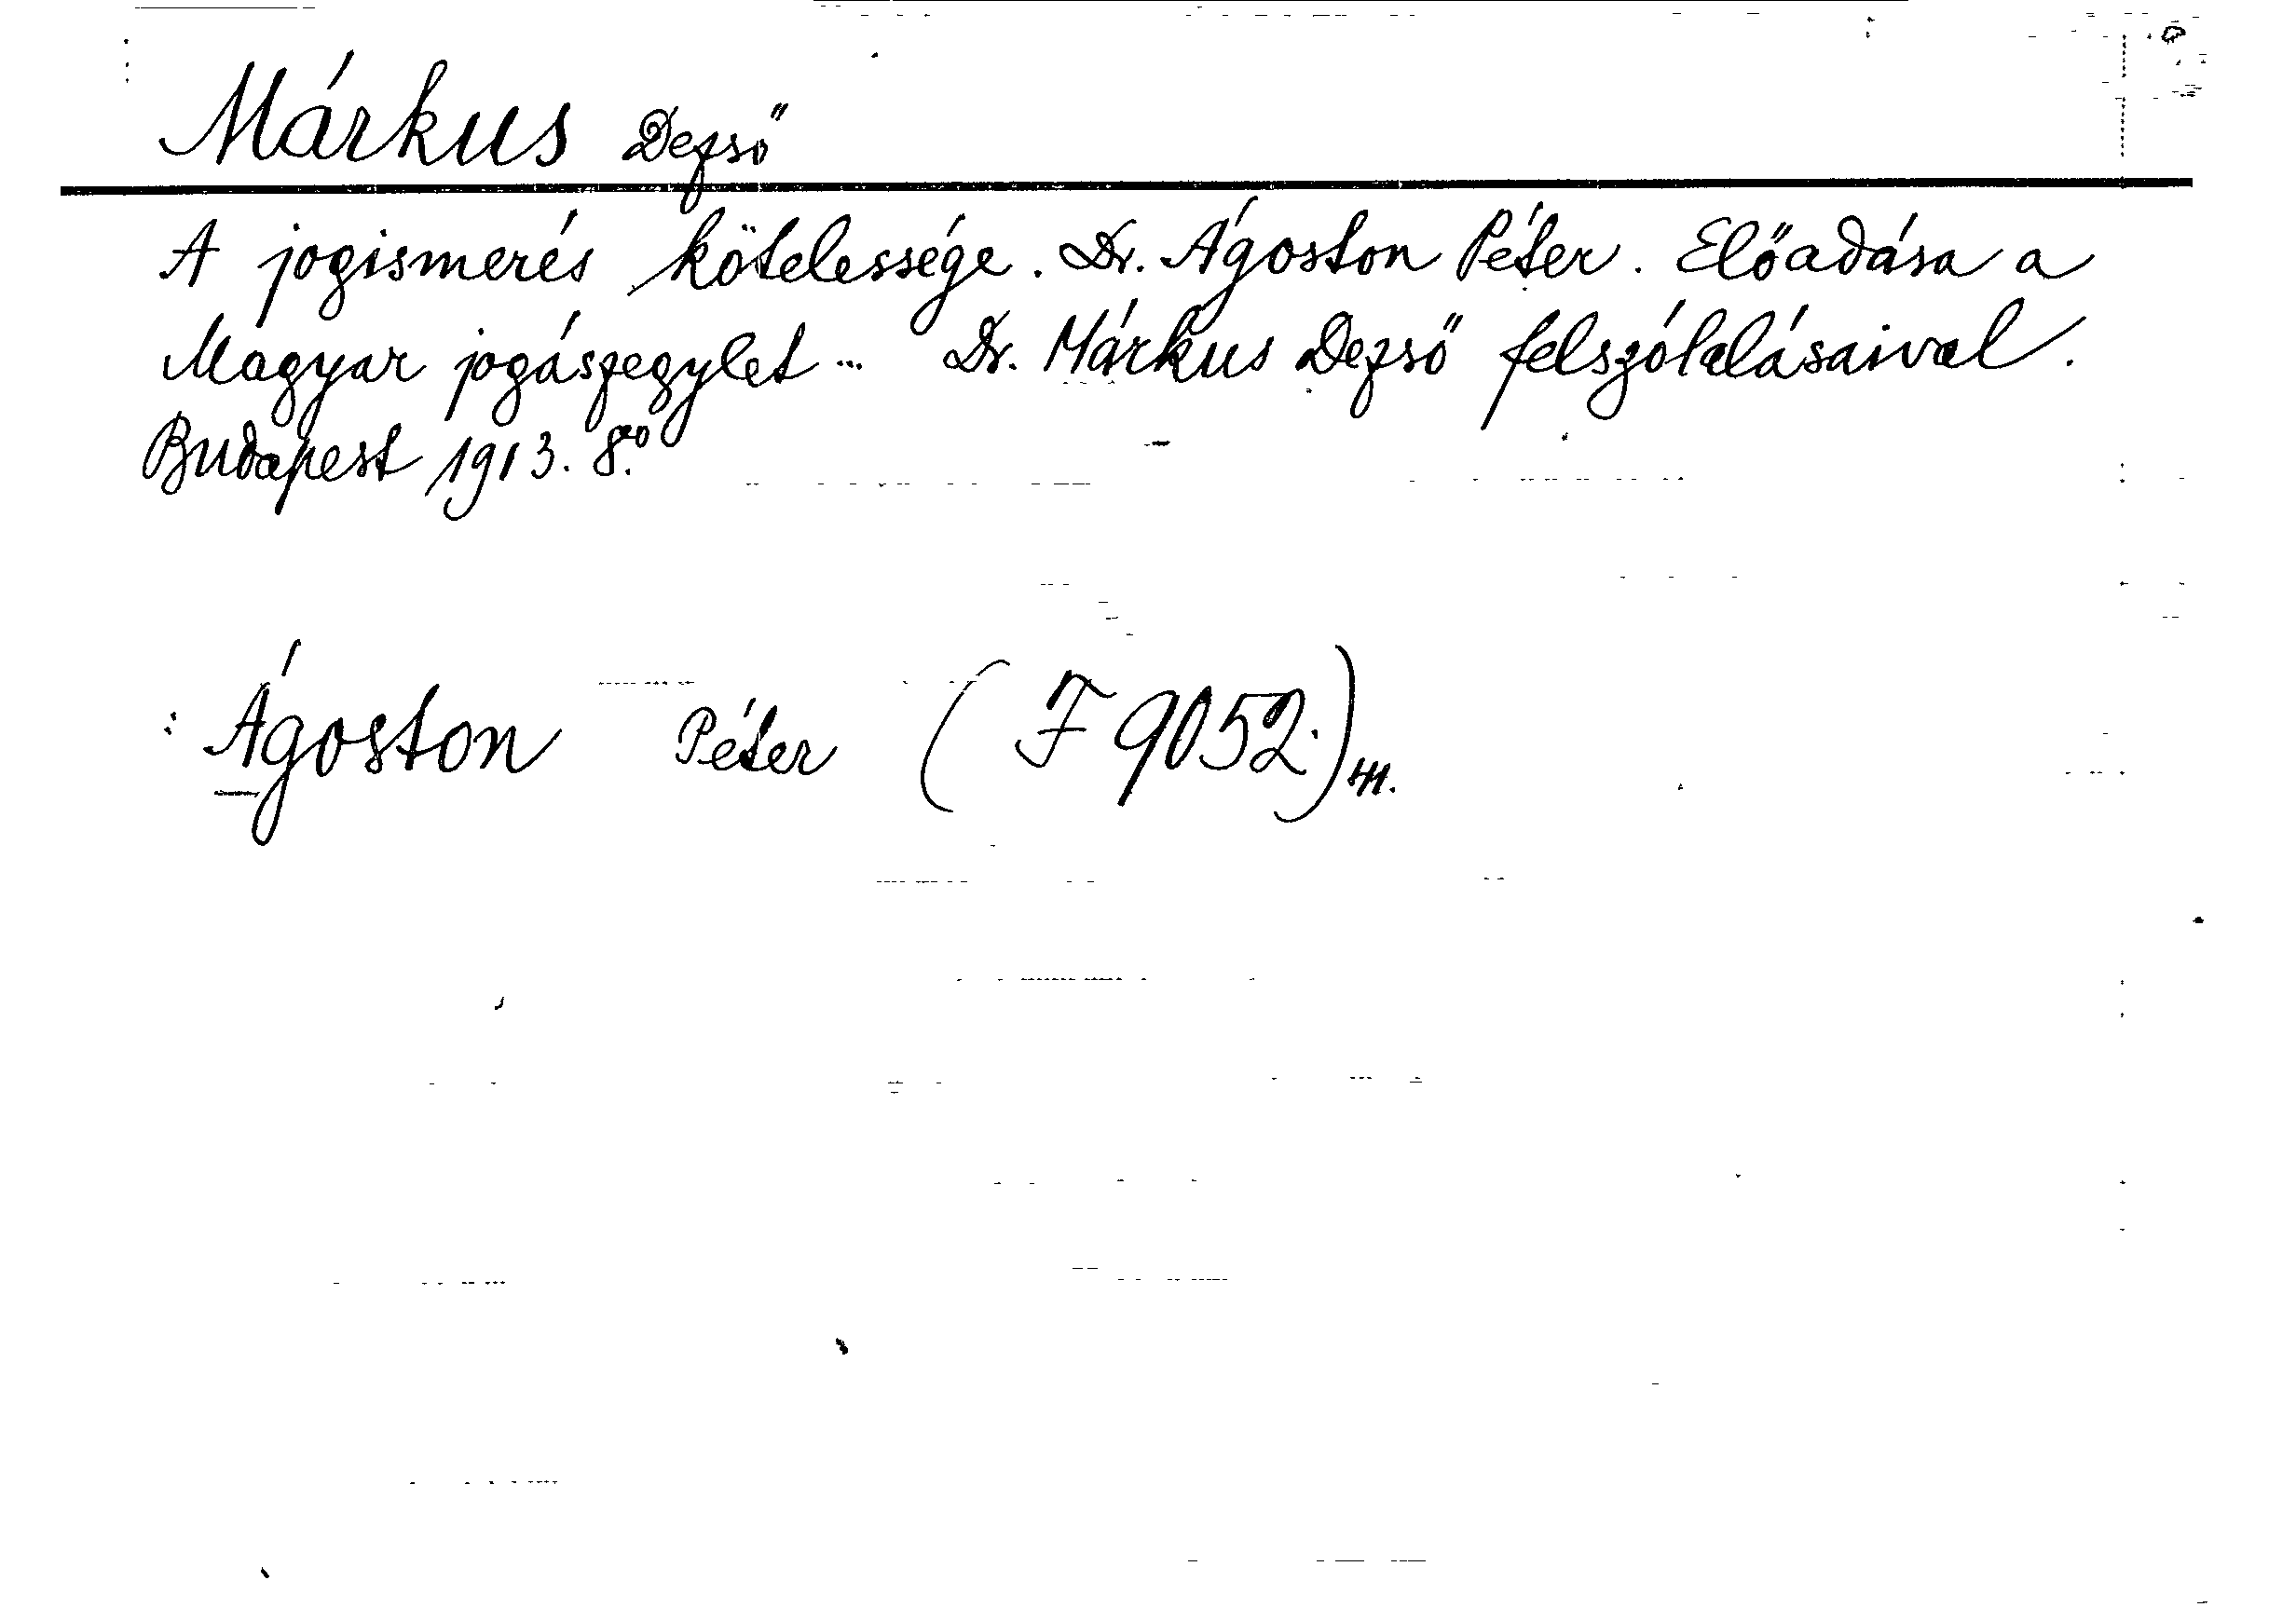 Márkus Dezső
A jogismerés kötelessége. Dr. Ágoston Péter. Előadása a
Magyar jogászegylet ... Dr. Márkus Dezső felszólalásaival.
Budapest 1913. 8.°
Ágoston Péter (F 9052.)